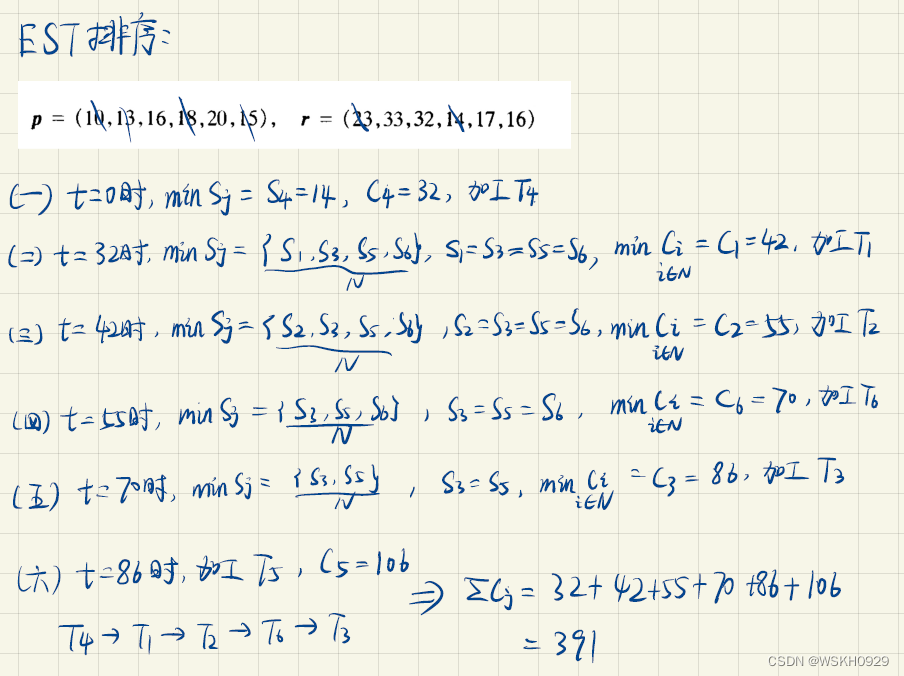 EST排序:
p = (10,13,16,18,20,15), r = (23,33,32,14,17,16)
(一) t=0时, min Sj = S4=14, C4=32, 加工T4
(二) t=32时, min Sj = {S1,S3,S5,S6}, S1=S3=S5=S6, min Ci = C1=42, 加工T1
N i∈N
(三) t=42时, min Sj={S2,S3,S5,S6}, S2=S3=S5=S6, min Ci = C2=55, 加工T2
N i∈N
(四) t=55时, min Sj = {S3,S5,S6}, S3=S5=S6, min Ci = C6=70, 加工T6
N i∈N
(五) t=70时, min Sj= {S3,S5}, S3=S5, min Ci = C3=86, 加工 T3
N i∈N
(六) t=86时, 加工 T5, C5=106
⇒ ΣCj = 32+42+55+70+86+106
T4→T1→T2→T6→T3
= 391
CSDN @WSKH0929